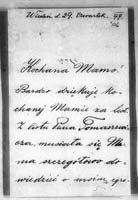 Wiedeń d. 29. Czerwiec 99.
Kochana Mamo!
Bardzo dziękuję Ko-
chanej Mamie za list
Z listu Pana Tomaszew-
sza, musiała się Ma-
ma szczegółowo do-
wiedzieć o moim egz-